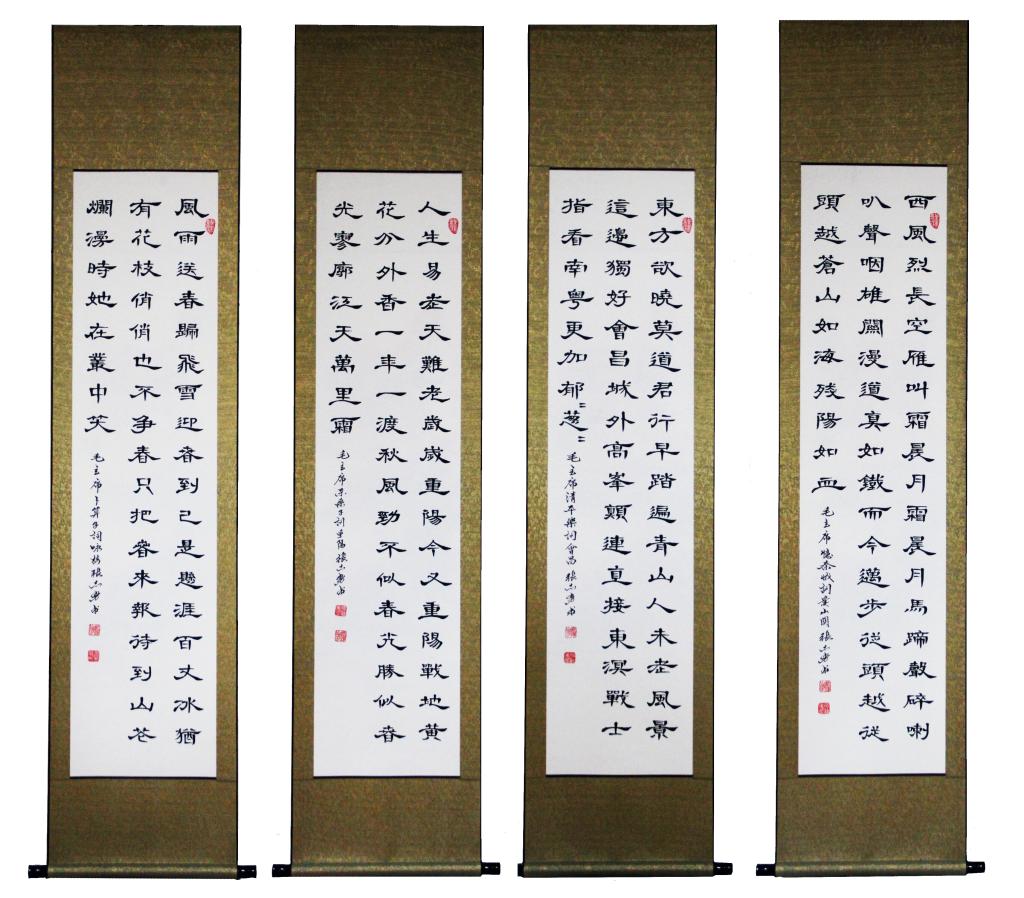 西風烈長空雁叫霜晨月霜晨月馬蹄聲碎喇
叭聲咽雄關漫道真如鐵而今邁步從頭越從
頭越蒼山如海殘陽如血
毛主席憶秦娥詞婁山關
東方欲曉莫道君行早踏遍青山人未老風景
這邊獨好會昌城外高峯顛連直接東溟戰士
指看南粵更加郁〻葱〻
毛主席清平樂詞會昌
人生易老天難老歲歲重陽今又重陽戰地黃
花分外香一年一渡秋風勁不似春光勝似春
光寥廓江天萬里霜
毛主席采桑子詞重陽
風雨送春歸飛雪迎春到已是懸涯百丈冰猶
有花枝俏俏也不争春只把春來報待到山花
爛漫時她在叢中笑
毛主席卜算子詞咏梅